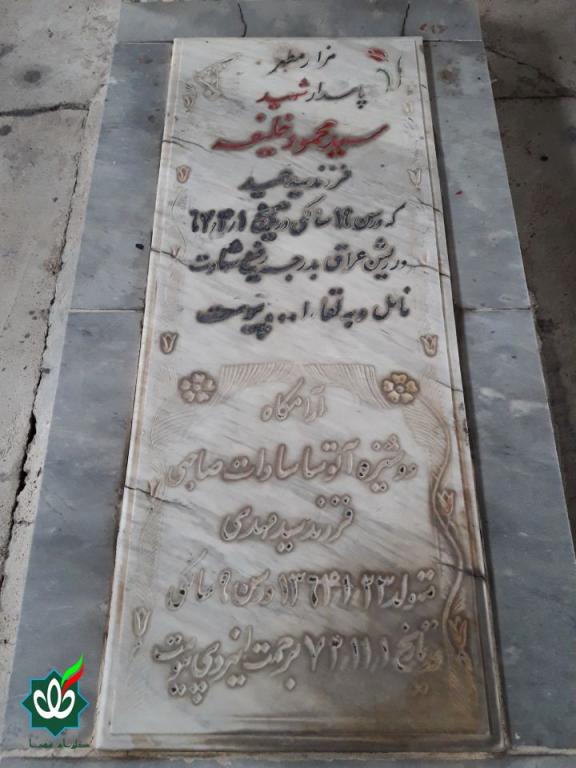 مزار مطهر
پاسدار شهید
سید محمود خلیفه
فرزند سید حمید
که در سن ۱۹ سالگی در تاریخ ۶۷٫۴٫۱
در عراق بدرجه رفیع شهادت
نائل و به لقاء ا... پیوست
آرامگاه
دوشیزه آتوسا سادات صاحبی
فرزند سید مهدی
متولد ۱۳۶۴٫۱٫۲۳ در سن ۹ سالگی
در تاریخ ۷۲٫۱۱٫۱ برحمت ایزدی پیوست